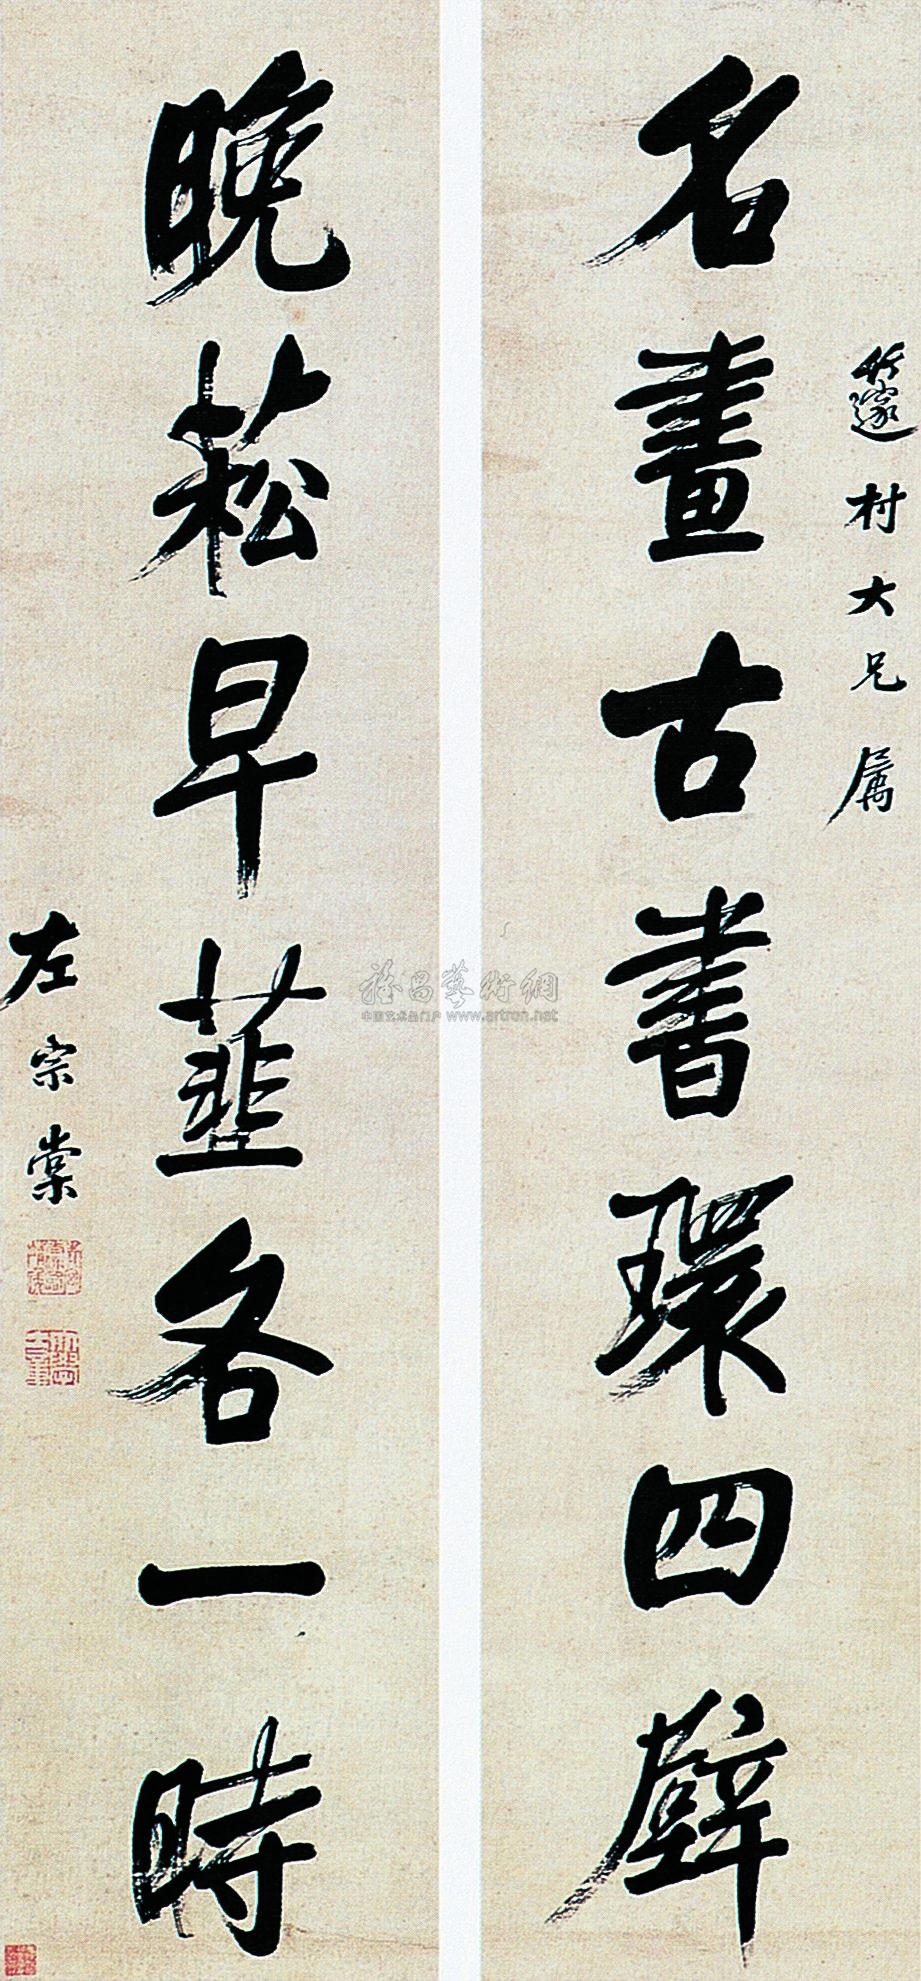 籧村大兄属
名畫古書環四壁
晚菘早韮各一時
左宗棠
雅昌藝術網
中国艺术品门户 www.artron.net